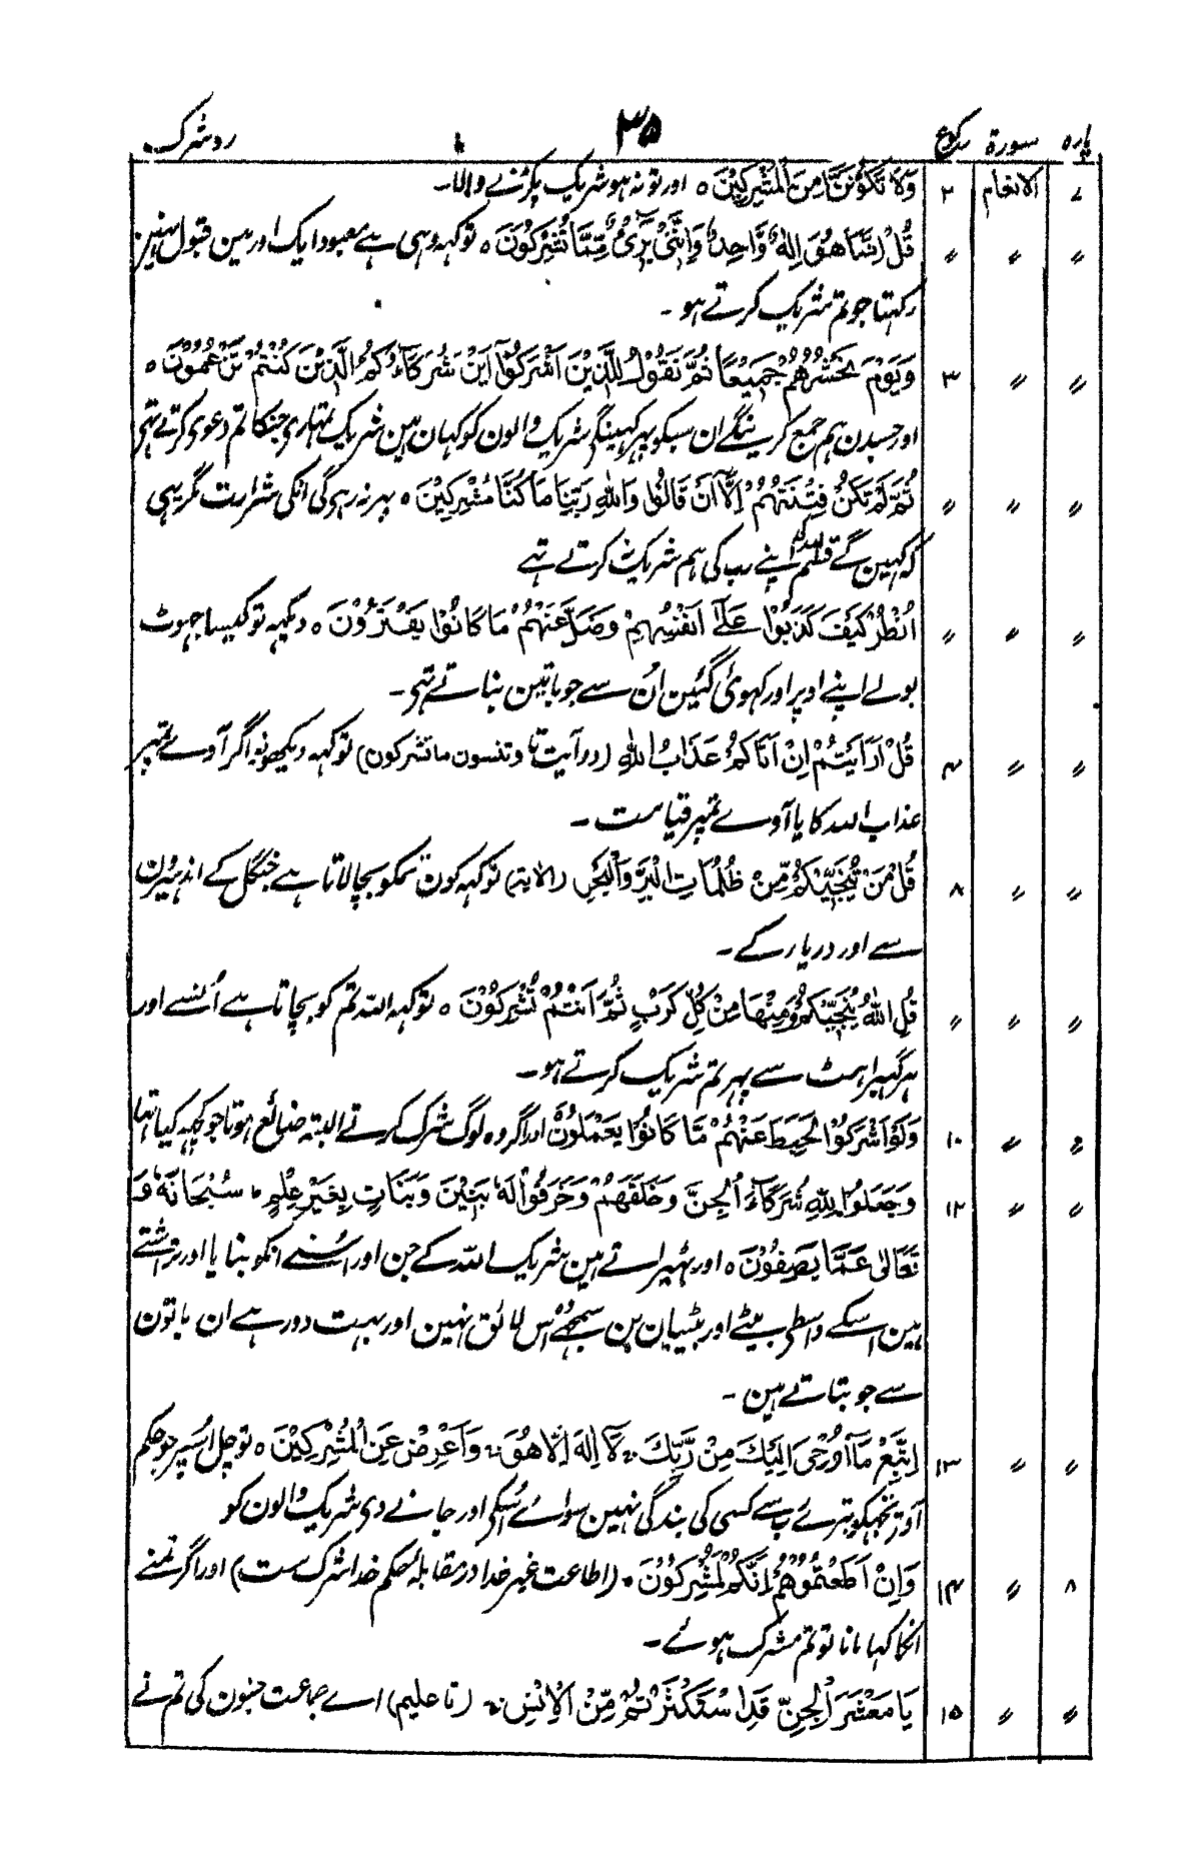 پارہ سورۃ رکوع ۳۵ رد شرک
۷ الانعام ۲ وَلَا تَكُوْنَنَّ مِنَ الْمُشْرِكِيْنَ ہ اور تو نہ ہو شریک پکڑنے والا۔
〃 〃 〃 قُلْ اِنَّمَا هُوَ اِلٰهٌ وَّاحِدٌ وَّاِنَّنِيْ بَرِيْۤءٌ مِّمَّا تُشْرِكُوْنَ ہ تو کہہ وہی ہے معبود ایک اور مین قبول نہین
رکہتا جو تم شریک کرتے ہو۔
〃 〃 ۳ وَيَوْمَ نَحْشُرُهُمْ جَمِيْعًا ثُمَّ نَقُوْلُ لِلَّذِيْنَ اَشْرَكُوْۤا اَيْنَ شُرَكَآءُكُمُ الَّذِيْنَ كُنْتُمْ تَزْعُمُوْنَ ہ
اور جسدن ہم جمع کرینگے ان سبکو پہر کہینگے شریک والون کو کہان ہین شریک تمہاری جنکا تم دعوی کرتے تہی
〃 〃 〃 ثُمَّ لَمْ تَكُنْ فِتْنَتُهُمْ اِلَّاۤ اَنْ قَالُوْا وَاللّٰهِ رَبِّنَا مَا كُنَّا مُشْرِكِيْنَ ہ پہر نہ رہیگی انکی شرارت مگر یہی
کہ کہین گے قسم اللہ کی اپنے رب کی ہم شریک نہ کرتے تہے
〃 〃 〃 اُنْظُرْ كَيْفَ كَذَبُوْا عَلٰۤى اَنْفُسِهِمْ وَضَلَّ عَنْهُمْ مَا كَانُوْا يَفْتَرُوْنَ ہ دیکہہ تو کیسا جہوٹ
بولے اپنے اوپر اور کہوئی گئین اُن سے جو باتین بناتے تہی۔
〃 〃 ۴ قُلْ اَرَاَيْتُمْ اِنْ اَتَاكُمْ عَذَابُ اللّٰهِ (دو آیت تا وتنسون ما تشرکون) تو کہہ دیکہو تو اگر آوے تمپر
عذاب اللہ کا یا آوے تمپر قیامت۔
〃 〃 ۸ قُلْ مَنْ يُّنَجِّيْكُمْ مِّنْ ظُلُمَاتِ الْبَرِّ وَالْبَحْرِ (الایة) تو کہہ کون تمکو بچا لاتا ہے جنگل کے اندہیرون
سے اور دریا رکے۔
〃 〃 〃 قُلِ اللّٰهُ يُنَجِّيْكُمْ مِّنْهَا وَمِنْ كُلِّ كَرْبٍ ثُمَّ اَنْتُمْ تُشْرِكُوْنَ ہ تو کہہ اللہ تم کو بچاتا ہے اُنسے اور
ہر گہبراہٹ سے پہر تم شریک کرتے ہو۔
〃 〃 ۱۰ وَلَوْ اَشْرَكُوْا لَحَبِطَ عَنْهُمْ مَا كَانُوْا يَعْمَلُوْنَ اور اگر وہ لوگ شرک کرتے البتہ ضائع ہوتا جو کچہہ کیا تہا
〃 〃 ۱۲ وَجَعَلُوْا لِلّٰهِ شُرَكَآءَ الْجِنَّ وَخَلَقَهُمْ وَخَرَقُوْا لَهٗ بَنِيْنَ وَبَنَاتٍ بِغَيْرِ عِلْمٍ ط سُبْحَانَهٗ وَ
تَعَالٰى عَمَّا يَصِفُوْنَ ہ اور ٹہیراتے ہین شریک اللہ کے جن اور اُسنے انکو بنایا اور تراشتے
ہین اسکے واسطی بیٹے اور بیٹیان بن سمجھے اُس لائق نہین اور بہت دور ہے ان باتون
سے جو بتاتے ہین۔
〃 〃 ۱۳ اِتَّبِعْ مَاۤ اُوْحِيَ اِلَيْكَ مِنْ رَّبِّكَ ج لَاۤ اِلٰهَ اِلَّا هُوَ ج وَاَعْرِضْ عَنِ الْمُشْرِكِيْنَ ہ تو چل اُسپر جو حکم
آوے تجہکو تیرے رب سے کسی کی بندگی نہین سوائے اُسکی اور جانے دی شریک والون کو
۸ 〃 ۱۴ وَاِنْ اَطَعْتُمُوْهُمْ اِنَّكُمْ لَمُشْرِكُوْنَ ہ (اطاعت غیر خدا در مقابلہ حکم خدا شرک ست) اور اگر تمنے
انکا کہا مانا تو تم مشرک ہوئے۔
〃 〃 ۱۵ يَا مَعْشَرَ الْجِنِّ قَدِ اسْتَكْثَرْتُمْ مِّنَ الْاِنْسِ ج (تا علیم) اے جماعت جنون کی تم نے